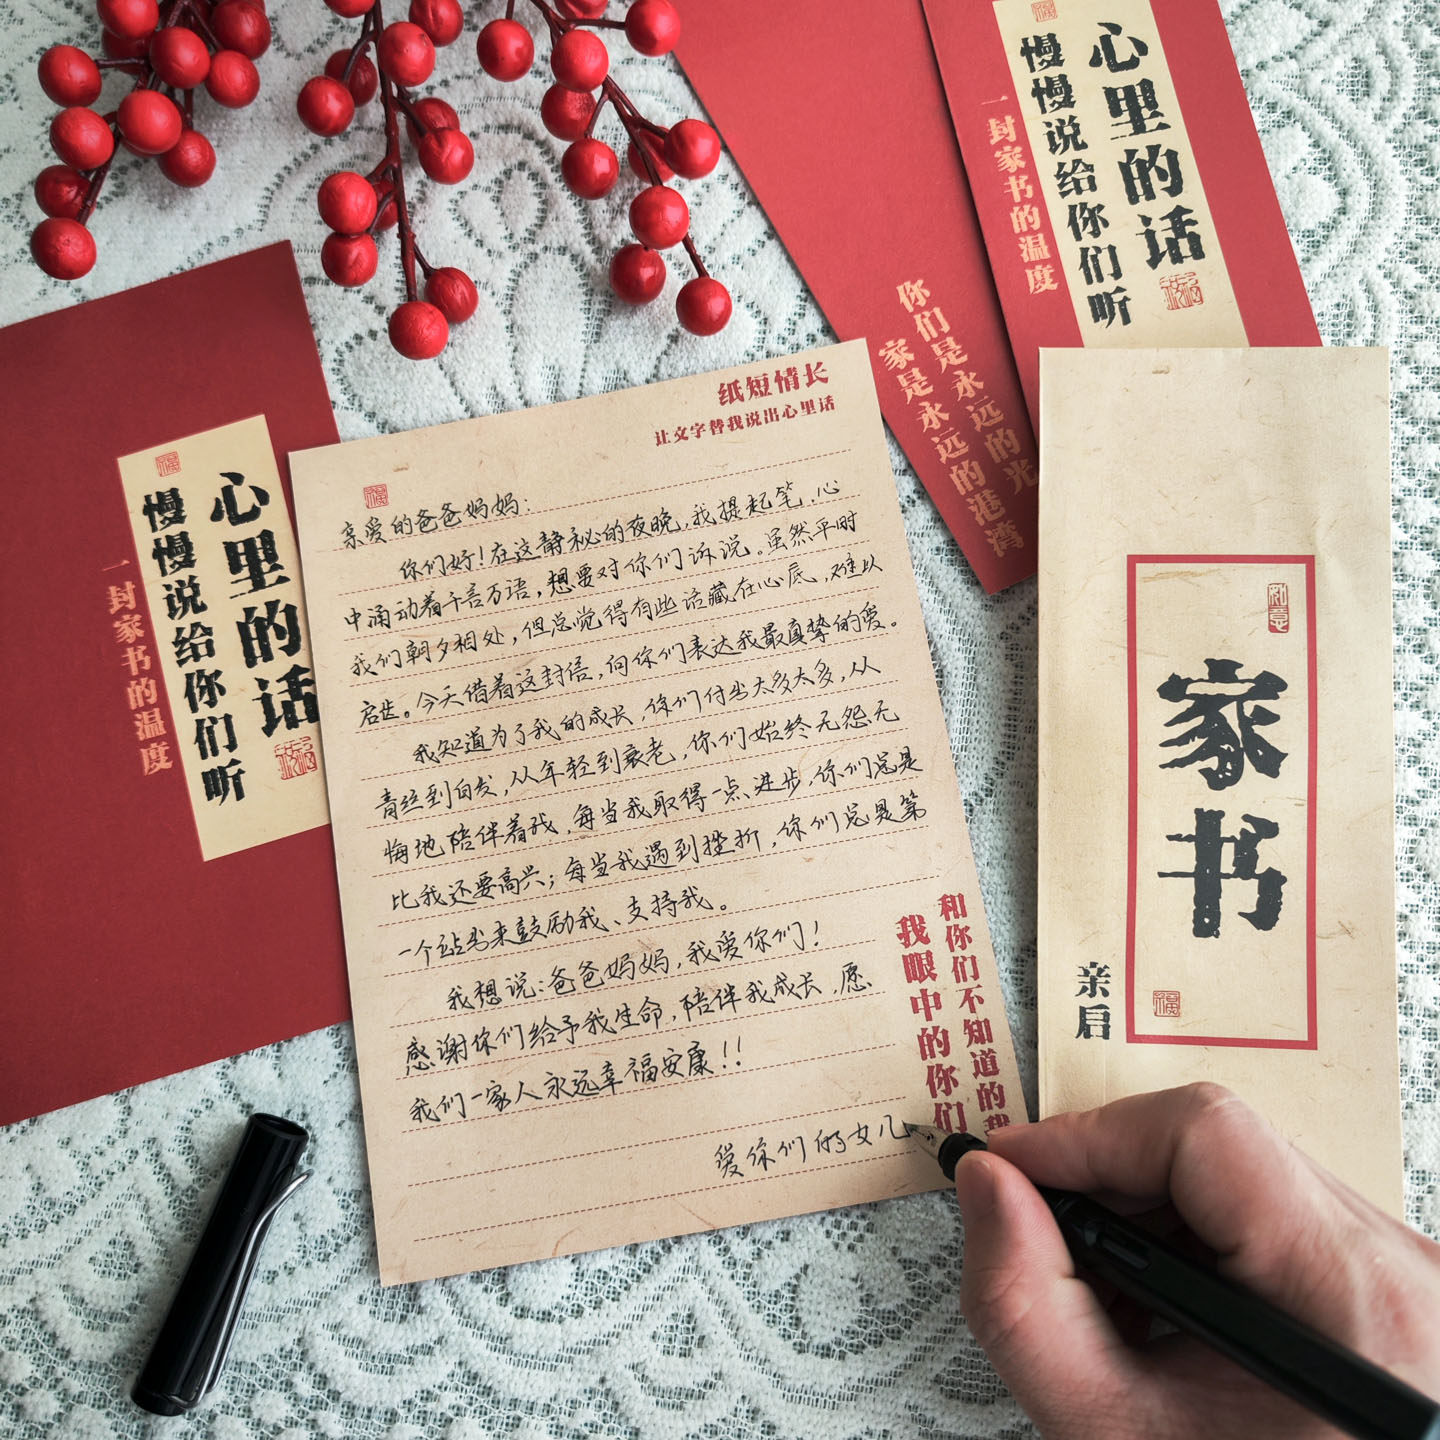 心里的话
慢慢说给你们听
一封家书的温度
你们是永远的光
家是永远的港湾
心里的话
慢慢说给你们听
一封家书的温度
纸短情长
让文字替我说出心里话
亲爱的爸爸妈妈:
你们好!在这静秘的夜晚,我提起笔,心
中涌动着千言万语,想要对你们诉说。虽然平时
我们朝夕相处,但总觉得有些话藏在心底,难以
启齿。今天借着这封信,向你们表达我最真挚的爱。
我知道为了我的成长,你们付出太多太多,从
青丝到白发,从年轻到衰老,你们始终无怨无
悔地陪伴着我,每当我取得一点进步,你们总是
比我还要高兴;每当我遇到挫折,你们总是第
一个站出来鼓励我、支持我。
我想说:爸爸妈妈,我爱你们!
感谢你们给予我生命,陪伴我成长,愿
我们一家人永远幸福安康!!
爱你们的女儿
和你们不知道的我
我眼中的你们
家书
亲启
如意